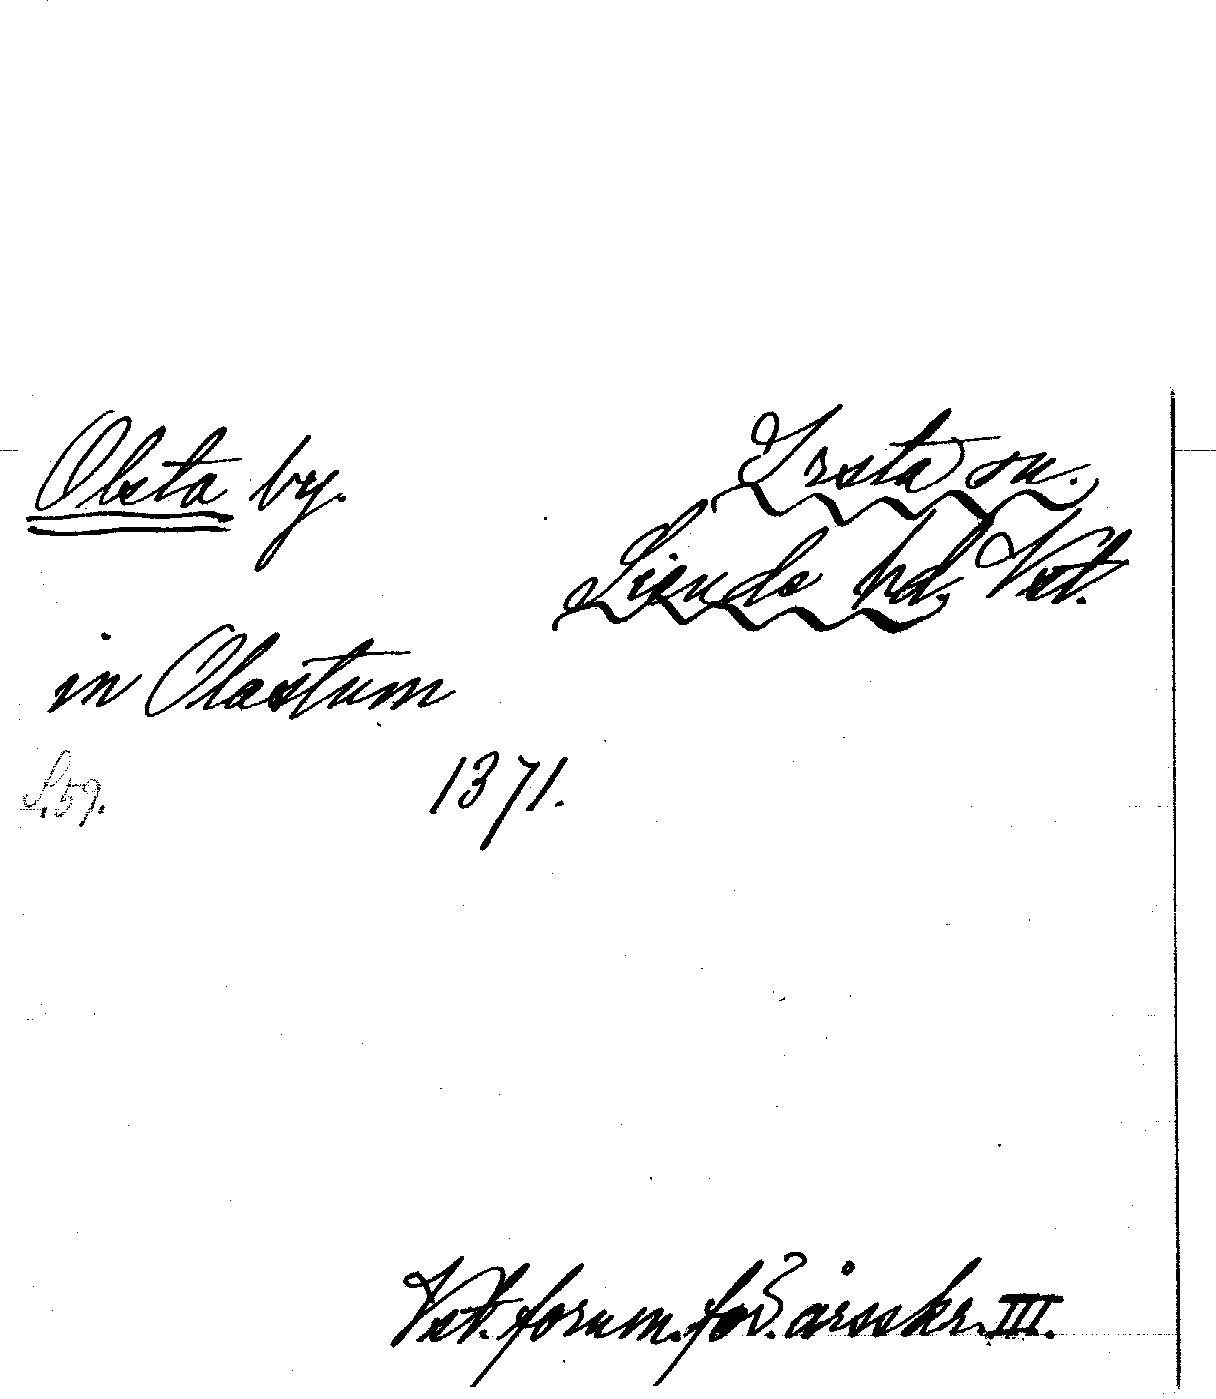 Olsta by.
Irsta sn.
Siende hd. Vst.
in Olastum
S. 59.
1371.
Vst. fornm. för. årsskr. III.